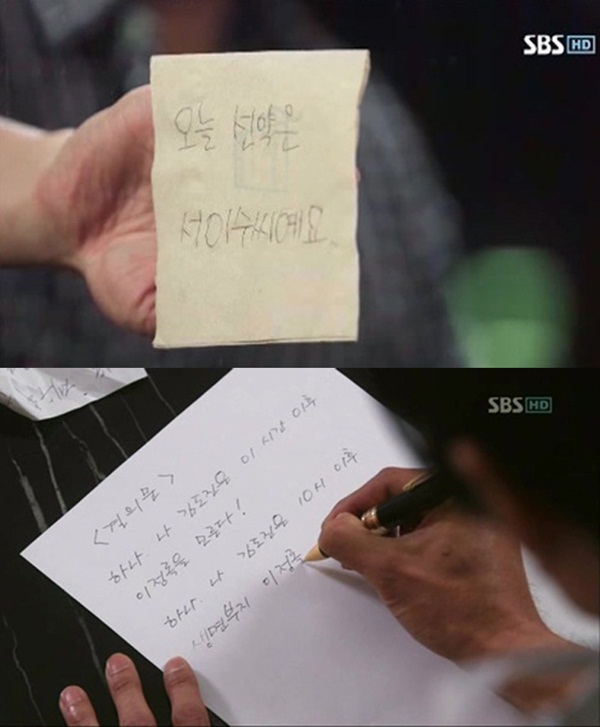 SBS HD
오늘 선약은
서이수씨예요.
SBS HD
<결의문>
하나. 나 김도진은 이 시간 이후
이정록을 모른다!
하나. 나 김도진은 10시 이후
생면부지 이정록